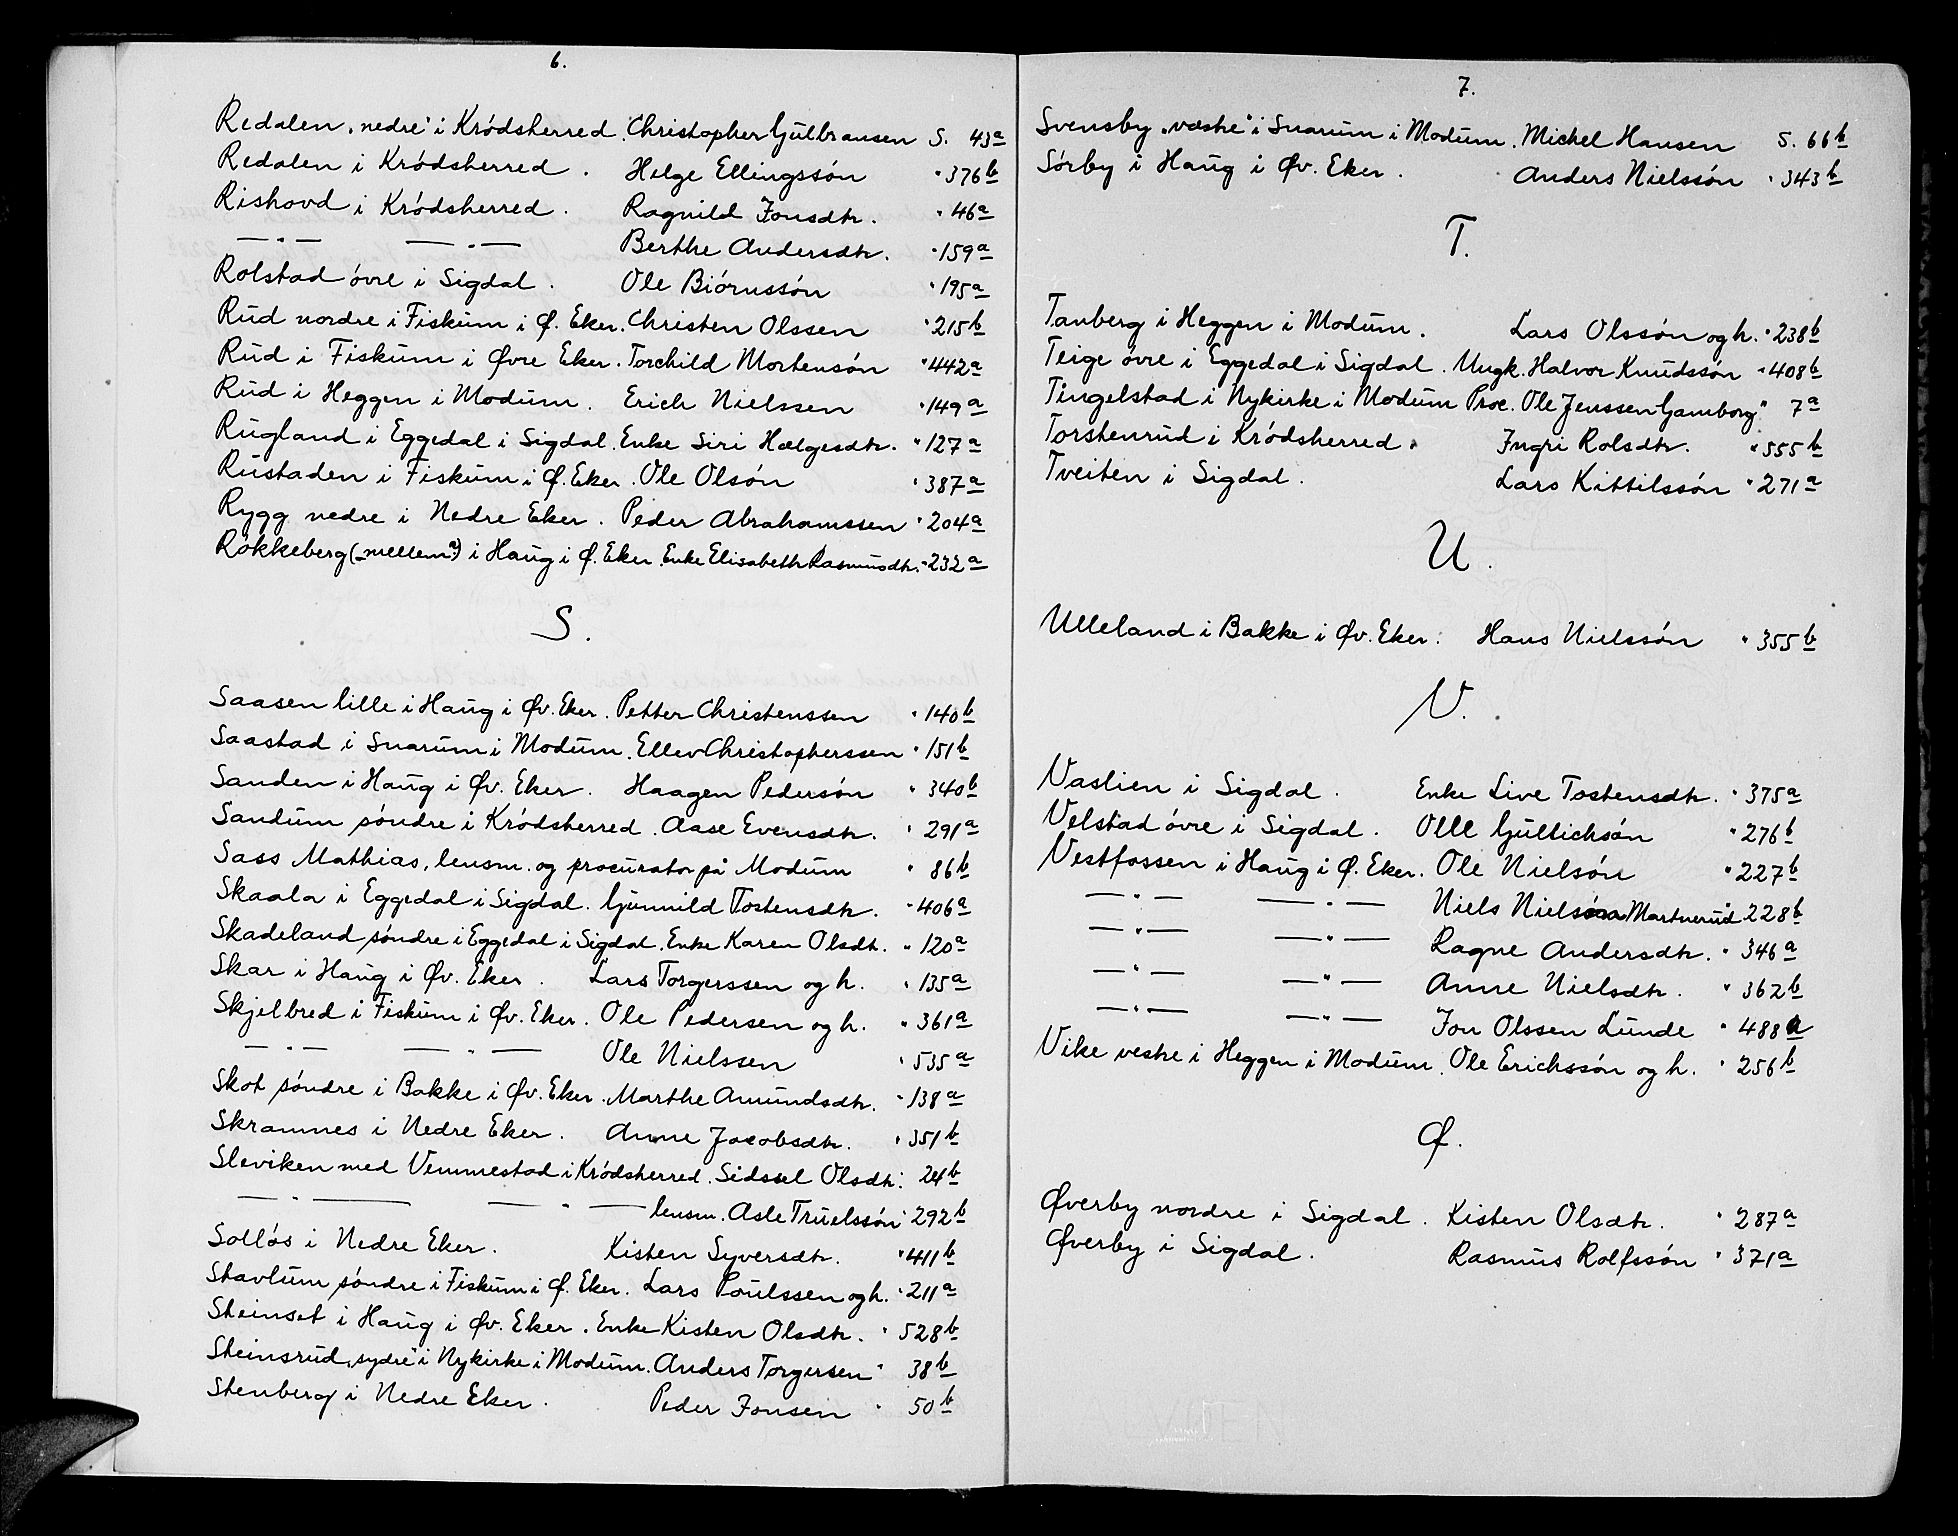 6.
Redalen „nedre" i Krødsherred. Christopher Gulbransen S. 43a
Redalen i Krødsherred. Helge Ellingssøn " 376b
Rishovd i Krødsherred. Ragnild Jonsdtr. " 46a
— " — — " — Berthe Andersdtr. " 159a
Rolstad øvre i Sigdal. Ole Biørnssøn " 195a
Rud nordre i Fiskum i Ø. Eker. Christen Olssen " 215b
Rud i Fiskum i Øvre Eker. Torchild Mortensøn " 442a
Rud i Heggen i Modum. Erich Nielssen " 149a
Rugland i Eggedal i Sigdal. Enke Siri Hælgesdtr. " 127a
Rustaden i Fiskum i Ø. Eker. Ole Olsøn " 387a
Rygg nedre i Nedre Eker. Peder Abrahamssen " 204a
Røkkeberg („mellem"?) i Haug i Ø. Eker. Enke Elisabeth Rasmusdtr. " 232a
S.
Saasen lille i Haug i Øv. Eker. Petter Christenssen " 140b
Saastad i Snarum i Modum. Ellev Christopherssen " 151b
Sanden i Haug i Øv. Eker. Haagen Pedersøn " 340b
Sandum søndre i Krødsherred. Aase Evensdtr. " 291a
Sass Mathias, lensm. og procurator på Modum " 86b
Skaala i Eggedal i Sigdal. Gunnild Tostensdtr. " 406a
Skadeland søndre i Eggedal i Sigdal. Enke Karen Olsdtr. " 120a
Skar i Haug i Øv. Eker. Lars Torgerssen og h. " 135a
Skjelbred i Fiskum i Øv. Eker. Ole Pedersen og h. " 361a
— " — — " — Ole Nielssen " 535a
Skot søndre i Bakke i Øv. Eker. Marthe Amundsdtr. " 138a
Skramnes i Nedre Eker. Anne Jacobsdtr. " 351b
Sleviken med Vemmestad i Krødsherred. Sidssel Olsdtr. " 24b
— " — — " — lensm. Asle Truelssøn " 292b
Solløs i Nedre Eker. Kisten Syversdtr. " 411b
Stavlum søndre i Fiskum i Ø. Eker. Lars Poulssen og h. " 211a
Steinset i Haug i Øv. Eker. Enke Kisten Olsdtr. " 528b
Steinsrud „sydre" i Nykirke i Modum. Anders Torgersen " 38b
Stenberg i Nedre Eker. Peder Jonsen " 50b
7.
Svensby „vestre" i Snarum i Modum. Michel Hansen S. 66b
Sørby i Haug i Øv. Eker. Anders Nielssøn " 343b
T.
Tanberg i Heggen i Modum. Lars Olssøn og h. " 238b
Teige øvre i Eggedal i Sigdal. Ungk. Halvor Knudssøn " 408b
Tingelstad i Nykirke i Modum Proc. Ole Jenssen Gamborg " 7a
Torstenrud i Krødsherred. Ingri Rolsdtr. " 555b
Tveiten i Sigdal. Lars Kittilssøn " 271a
U.
Ulleland i Bakke i Øv. Eker. Hans Nielssøn " 355b
V.
Vaslien i Sigdal. Enke Live Tostensdtr. " 375a
Velstad øvre i Sigdal. Olle Gullichsøn " 276b
Vestfossen i Haug i Ø. Eker. Ole Nielsøn " 227b
— " — — " — Niels Nielsøn Martnerud " 228b
— " — — " — Ragne Andersdtr. " 346a
— " — — " — Anne Nielsdtr. " 362b
— " — — " — Jon Olssen Lunde " 488a
Vike vestre i Heggen i Modum. Ole Erichssøn og h. " 256b
Ø.
Øverby nordre i Sigdal. Kisten Olsdtr. " 287a
Øverby i Sigdal. Rasmus Rolfssøn " 371a